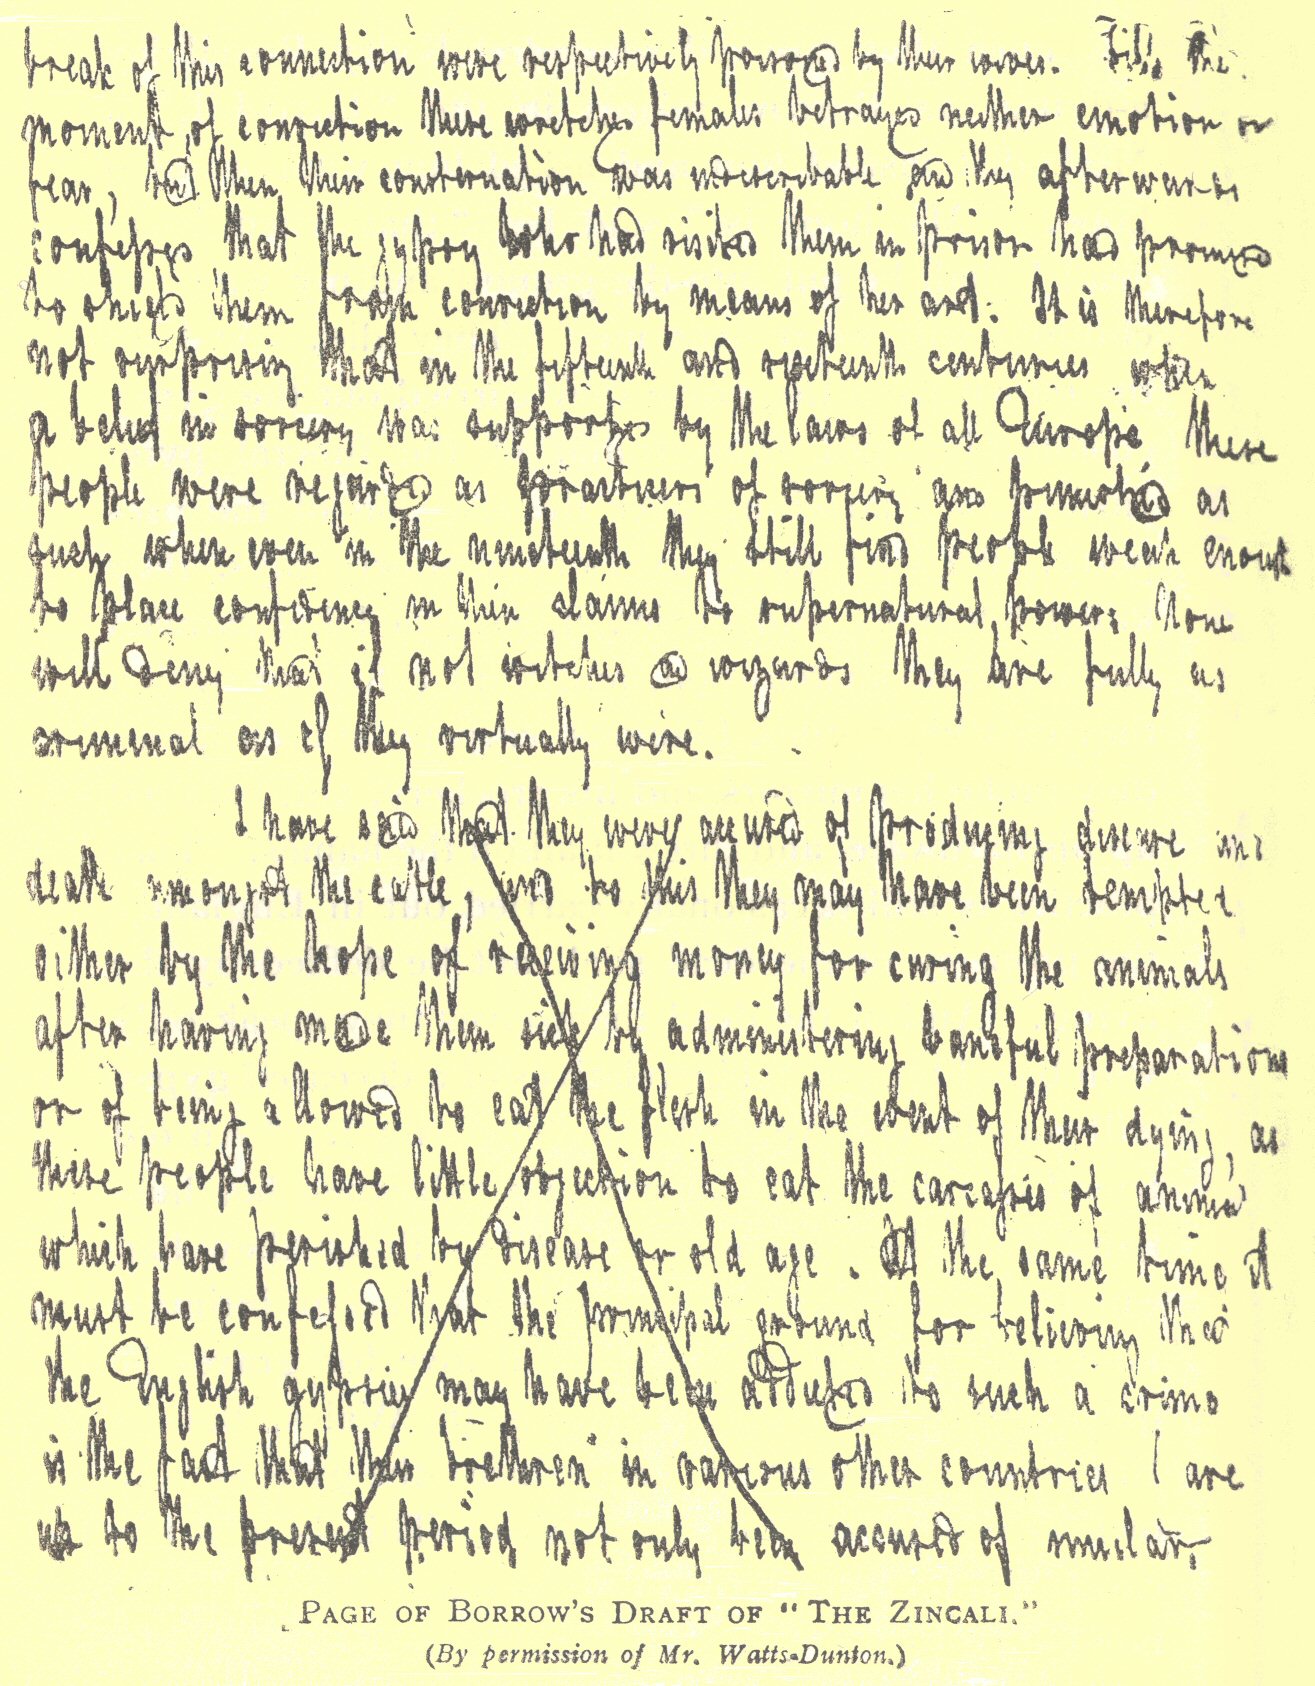 break of this connection were respectively poisoned by their wives. Till the
moment of conviction these wretches females betrayed neither emotion or
fear, but then their consternation was indescribable and they afterwards
confessed that the gypsy who had visited them in prison had promised
to shield them from conviction by means of her art. It is therefore
not surprising that in the fifteenth and sixteenth centuries when
a belief in sorcery was supported by the laws of all Europe these
people were regarded as practicers of sorcery and punished as
such when even in the nineteenth they still find people weak enough
to place confidence in their claims to supernatural power. None
will deny that if not witches and wizards they are fully as
criminal as if they virtually were.
I have said that they were accused of producing disease and
death amongst the cattle, and to this they may have been tempted
either by the hope of receiving money for curing the animals
after having made them sick by administering baneful preparations
or of being allowed to eat the flesh in the event of their dying, as
these people have little objection to eat the carcasses of animals
which have perished by disease or old age. At the same time it
must be confessed that the principal ground for believing that
the English gypsies may have been addicted to such a crime
is the fact that their brethren in various other countries are
up to the present period not only been accused of similar
PAGE OF BORROW'S DRAFT OF "THE ZINCALI."
(By permission of Mr. Watts-Dunton.)